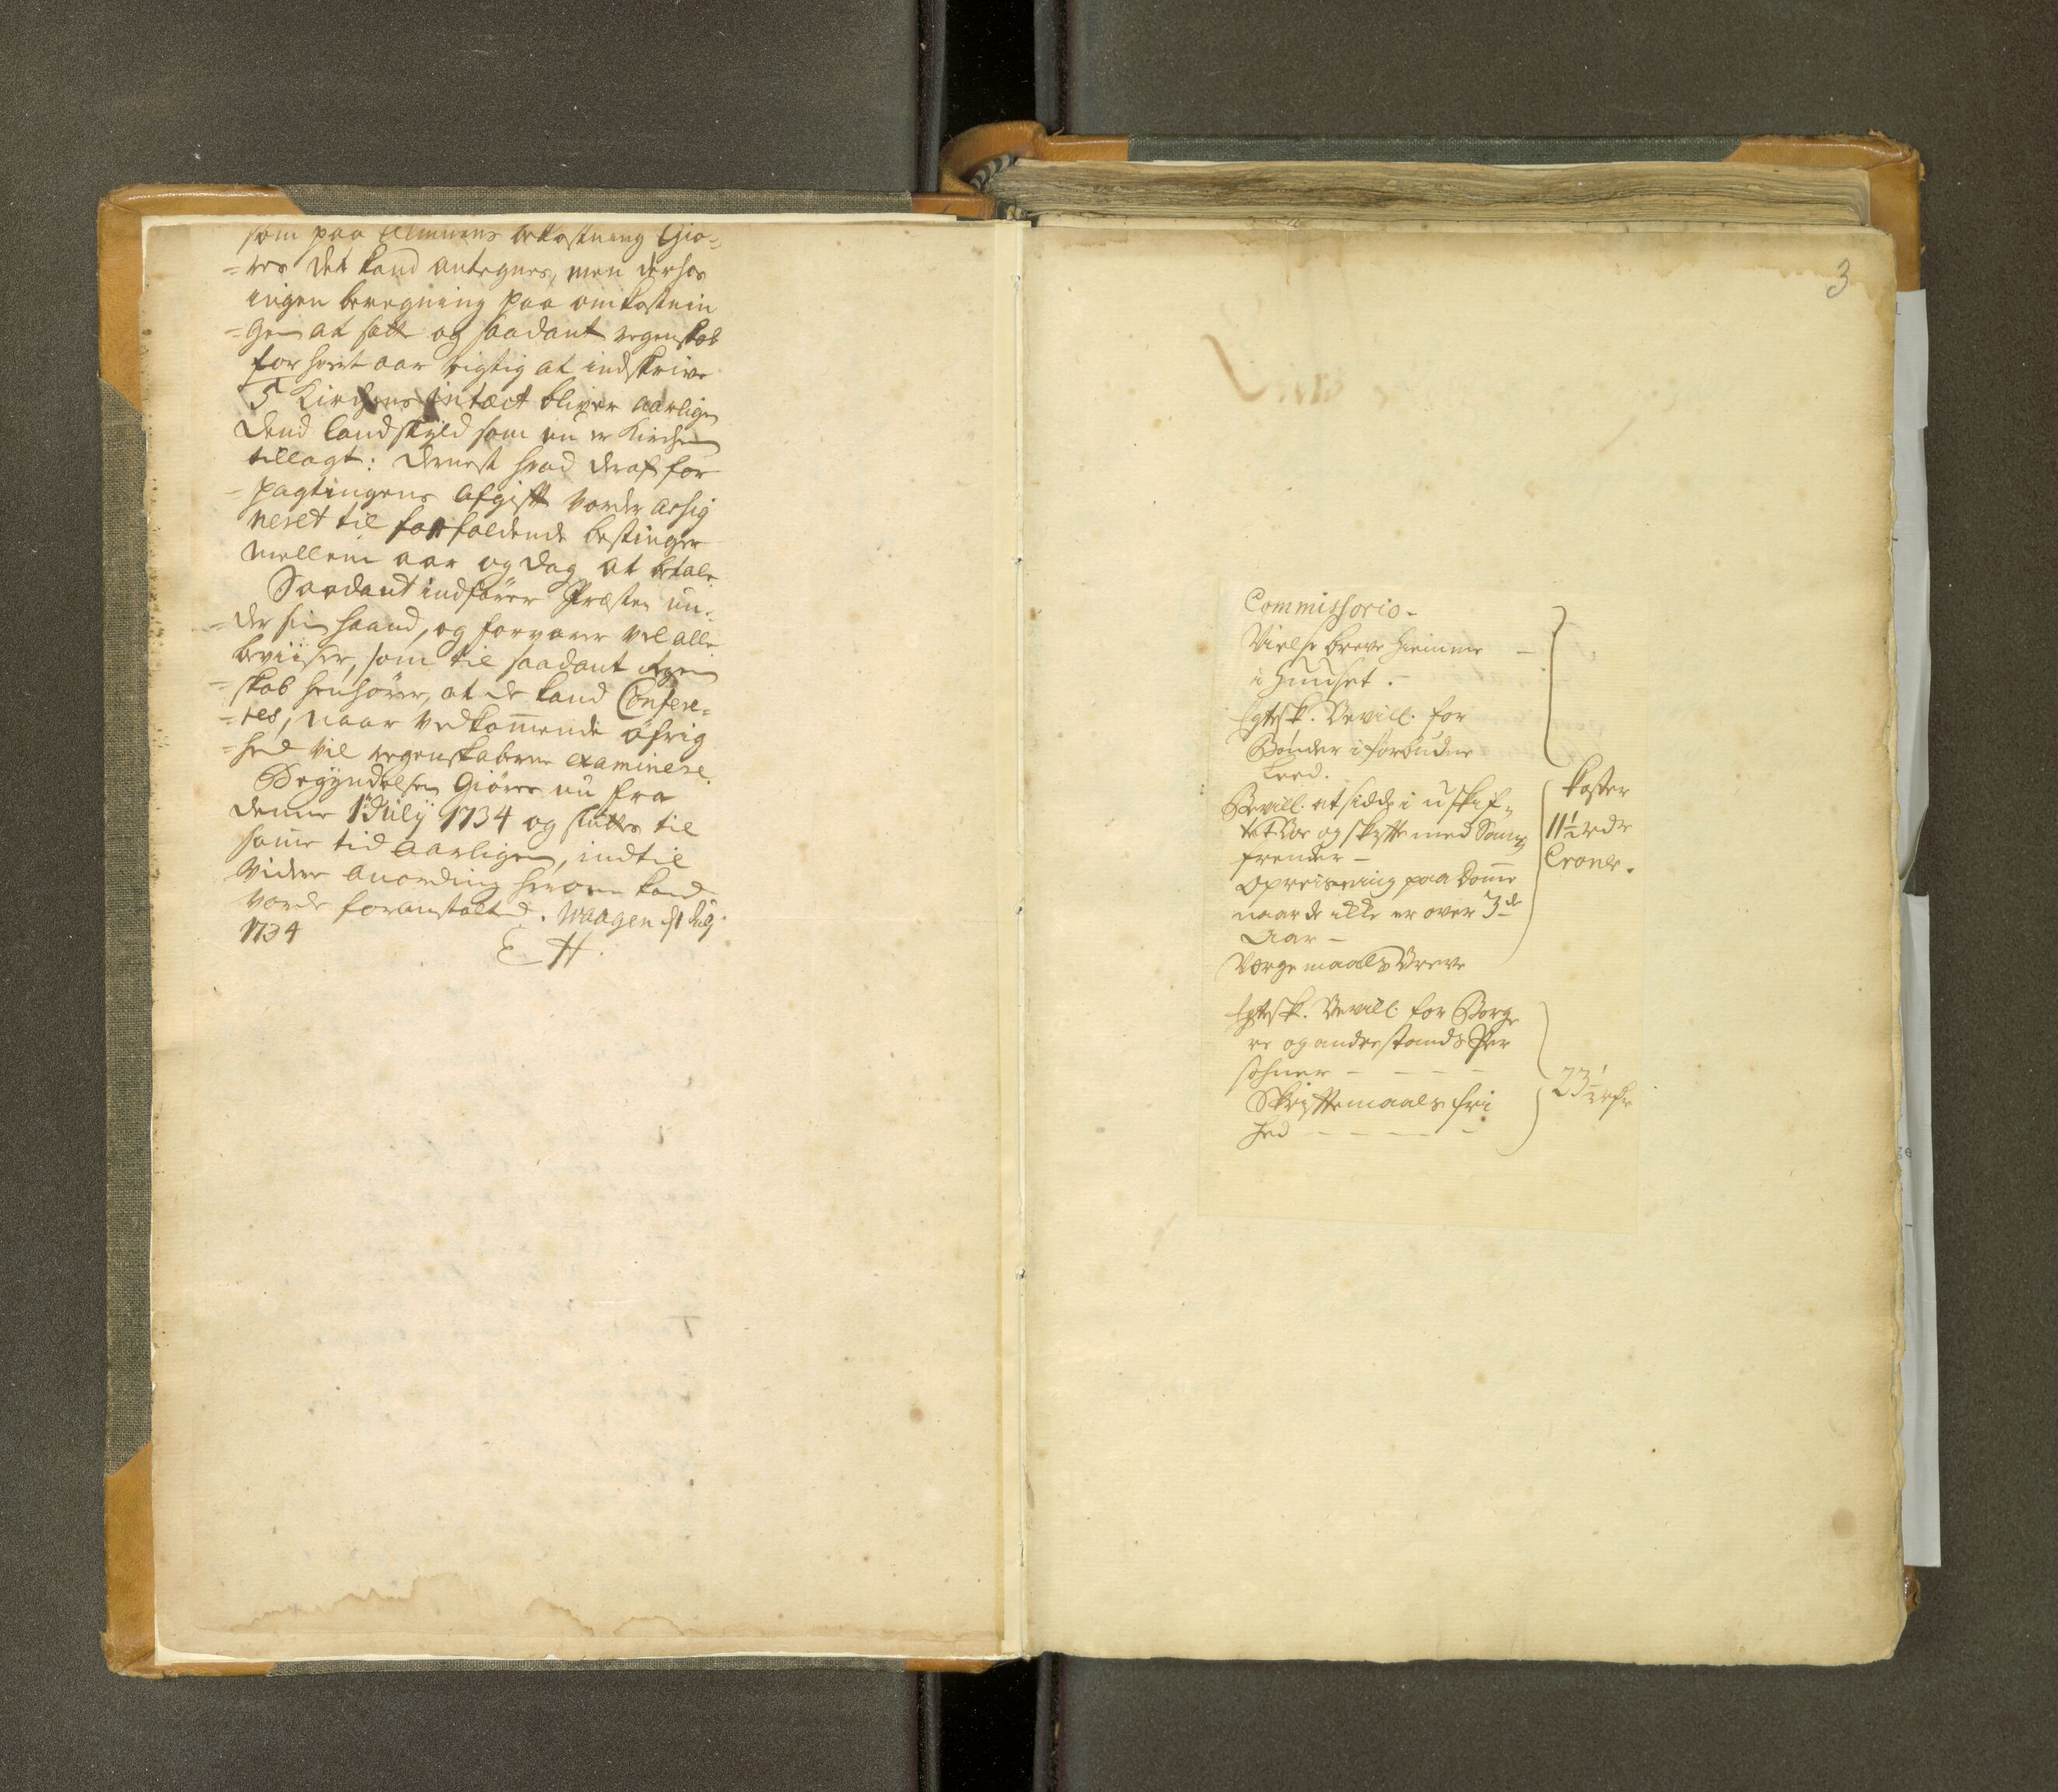 som paa Almuens bekostning Giø-
=res det kand antegnes, men derhos
ingen beregning paa omkostnin
=gen at sætte og saadant regenskab
for hvert aar rigtig at indskrive
5 Kirchens intæct bliver aarligen
dend landskyld som nu er Kirchen
tillagt: dernest hvad deraf for
=pagtingens afgift vorder assig
neret til forfaldende bestinger
mellem aar og dag at betale.
Saadant indfører Præsten un-
=der sin haand, og forvarer vel alle
beviiser, som til saadant regen
=skab henhører, at de kand Confere=
=res, naar vedkommende øfrig
=hed vil regenskaberne examinere.
Begyndelsen Giøres nu fra
denne 1 July 1734 og sluttes til
samme tid aarligen, indtil
videre anordning herom kand
vorde foranstalted. Waagen d 1 July
1734
E H
3
Commissorio-
Vielse breve hiemme -
i Huuset.-
Egtesk. Bevill. for
Bønder i forbudne
Leed.
Bevill. at sidde i uskif=
tet Boe og skifte med Sam
frender -
Opreisning paa Domme
naar de ikke er over 3de
Aar -
Værgemaals Breve
koster
11½ rdr
Croner.
Egtesk. Bevill. for Borge
re og andre stands Per
sohner - - - -
Skriftemaals fri
hed - - - - -
23½ rdr